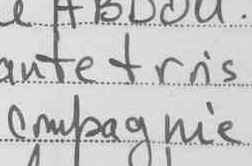 e ABBOU.
ante tris
Compagnie